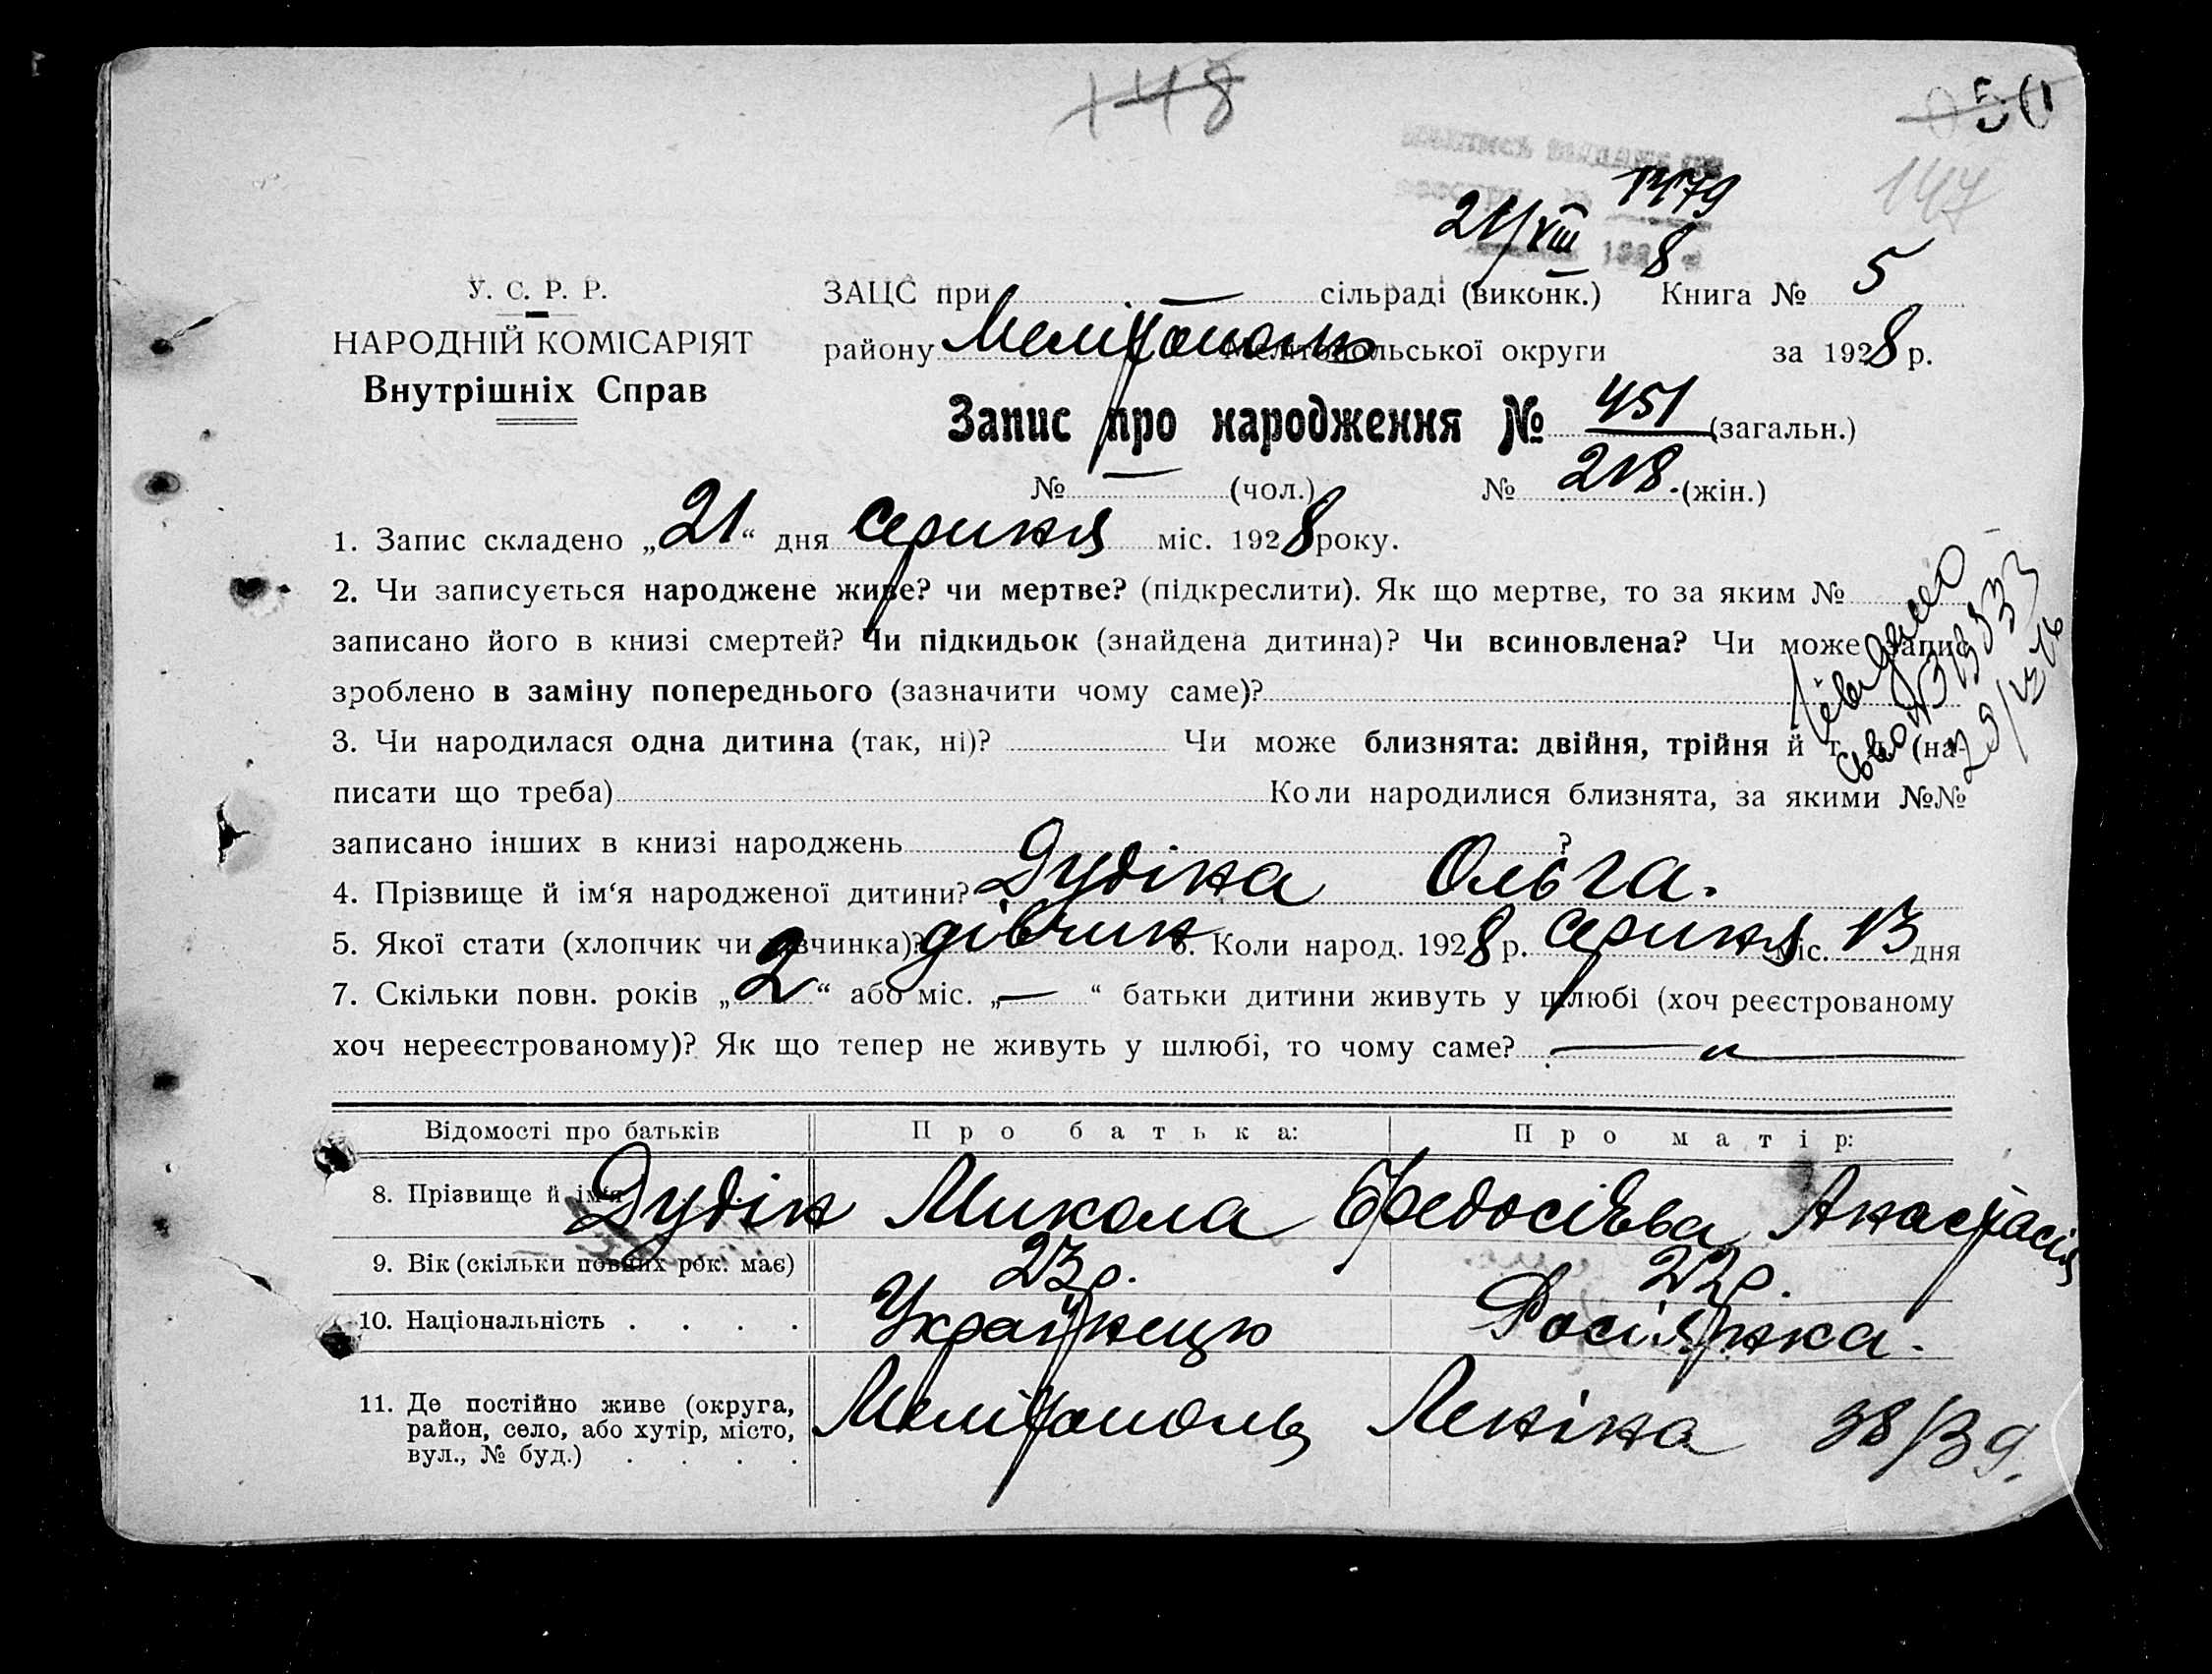 148
050
147
1379
21/VIII 8
У. С. Р. Р.
НАРОДНІЙ КОМІСАРІЯТ
Внутрішніх Справ
ЗАЦС при — сільраді (виконк.) Книга № 5
району Мелітополь Мелітопольської округи за 1928 р.
Запис про народження № 451 (загальн.)
№ — (чол.) № 218. (жін.)
1. Запис складено „21“ дня серпня міс. 1928 року.
2. Чи записується народжене живе? чи мертве? (підкреслити). Як що мертве, то за яким №
записано його в книзі смертей? Чи підкидьок (знайдена дитина)? Чи всиновлена? Чи може запис
зроблено в заміну попереднього (зазначити чому саме)?
3. Чи народилася одна дитина (так, ні)? Чи може близнята: двійня, трійня й т. д. (на-
писати що треба) Коли народилися близнята, за якими №№
записано інших в книзі народжень ?
4. Прізвище й ім‘я народженої дитини? Дудіна Ольга.
5. Якої стати (хлопчик чи дівчинка)? дівчин 6. Коли народ. 1928 р. серпня міс. 13 дня
7. Скільки повн. років „2“ або міс. „—“ батьки дитини живуть у шлюбі (хоч реєстрованому
хоч нереєстрованому)? Як що тепер не живуть у шлюбі, то чому саме? — „ —
Відомості про батьків Про батька: Про матір:
8. Прізвище й ім'я Дудін Микола Федосієва Анастасія
9. Вік (скільки повних рок. має) 23 р. 22 р.
10. Національність . . . . Українець Росіянка.
11. Де постійно живе (округа,
район, село, або хутір, місто,
вул., № буд.) . . . . Мелітополь Леніна 38/39.